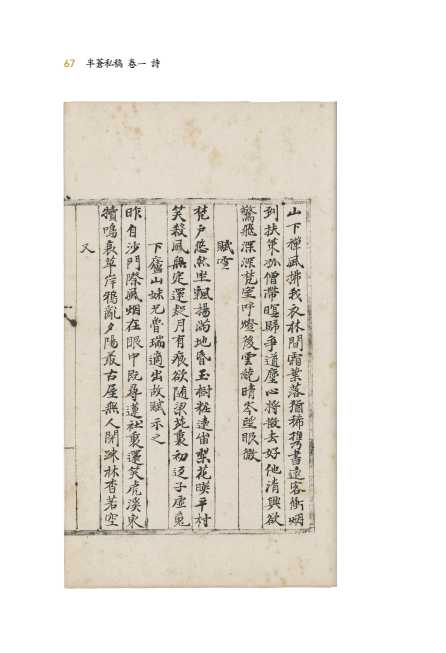 67 半蒼私稿 卷一 詩
山下禪風拂我衣林間霜葉落猶稀携書遠客衝烟
到扶策孤僧帶暝歸爭道塵心將撥去好他清興欲
驚飛深深梵室呼燈後雲皖晴岑望眼微
賦雪
梵戶悠然坐飄揚滿地昏玉樹粧遠宙梨花暎平村
笑殺風無定還疑月有痕欲隨梁苑裏初迓子虛
下廬山妹兄曾瑞適出故賦示之
昨自沙門隙風烟在眼中既尋蓮社裏還笑虎溪東
犢鳴衰草岸鴉亂夕陽叢古屋無人閉疎林杳若空
又